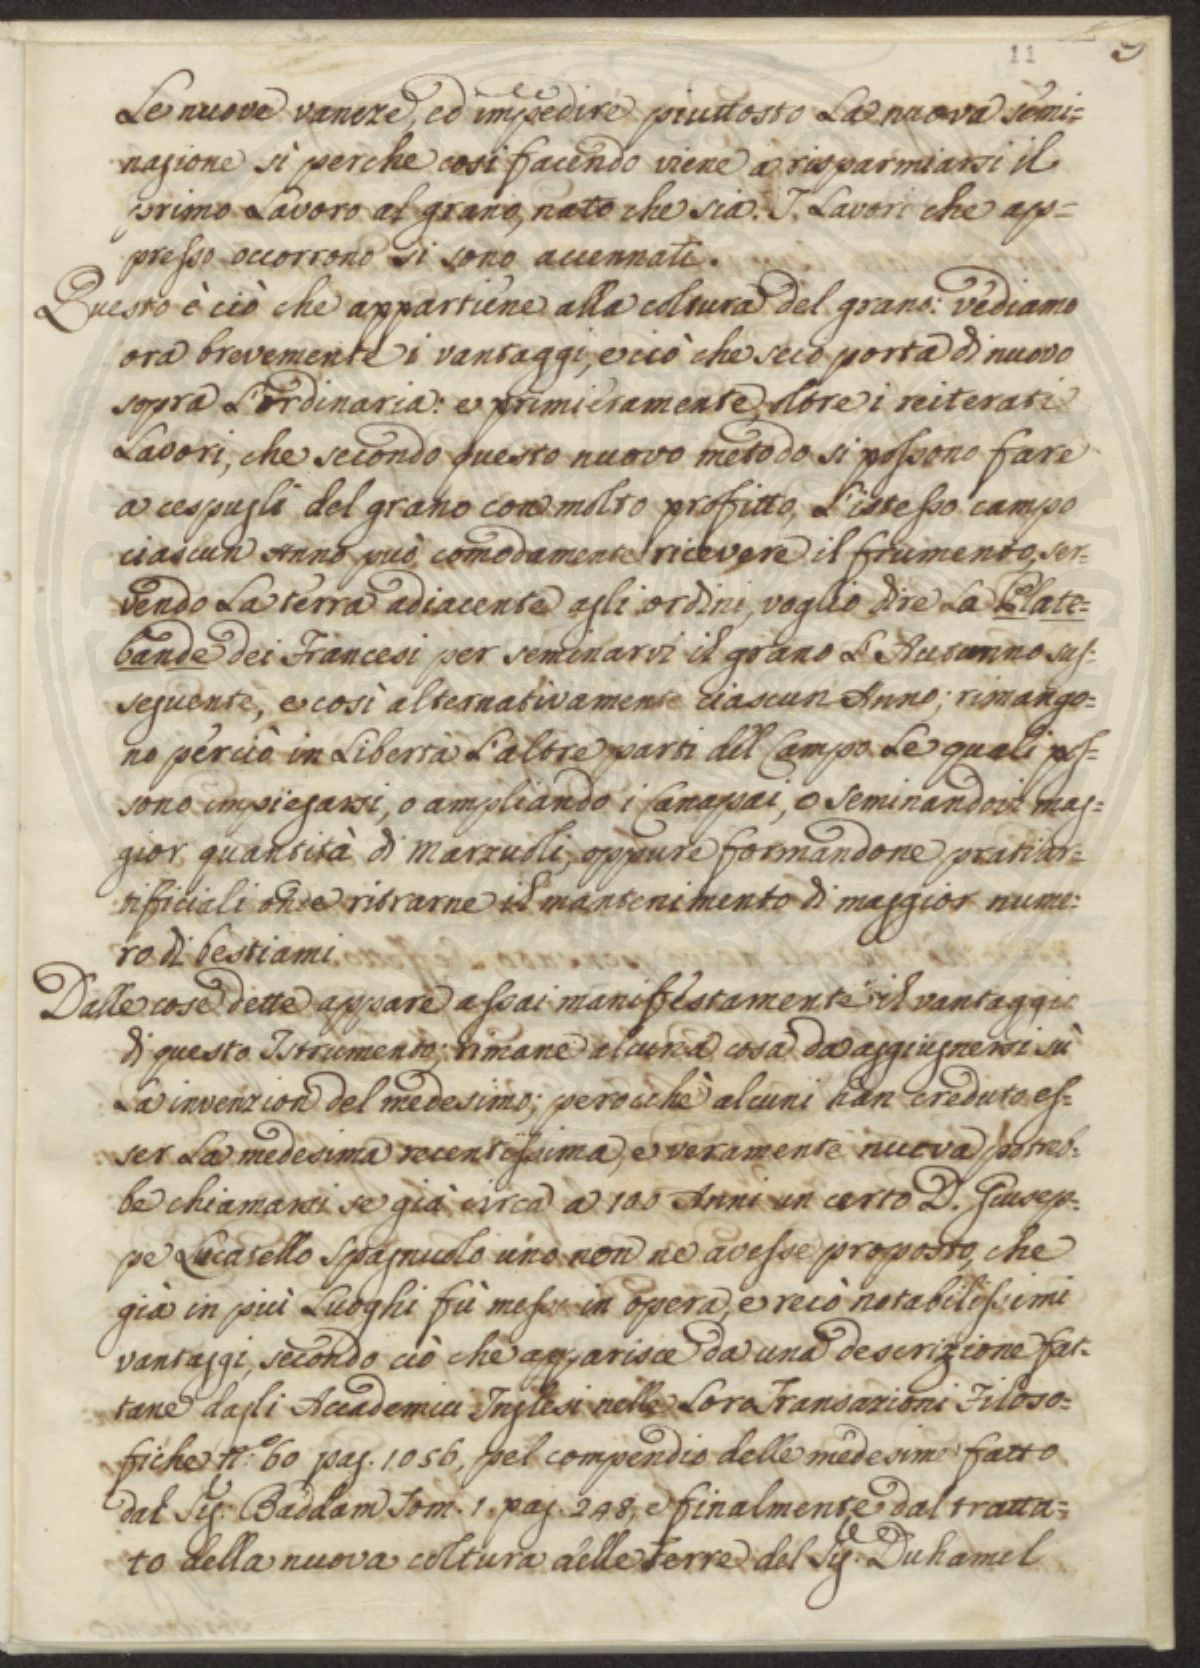 11
Le nuove vaneze, ed impedire piuttosto La nuova semi=
nazione sì perche cosi facendo viene a risparmiarsi il
primo Lavoro al grano, nato che sia. I Lavori che ap=
presso occorrono si sono accennati.
Questo è ciò che appartiene alla coltura del grano: vediamo
ora brevemente i vantaggi, e ciò che seco porta di nuovo
sopra L'ordinaria: e primieramente, oltre i reiterati
Lavori, che secondo questo nuovo metodo si possono fare
a cespugli del grano con molto profitto, L'istesso campo
ciascun Anno può comodamente ricevere il frumento, ser=
vendo La terra adiacente agli ordini, voglio dire La Plate=
bande dei Francesi per seminarvi il grano L'Autunno sus=
seguente, e così alternativamente ciascun Anno; rimango=
no perciò in Libertà L'altre parti del Campo Le quali pos=
sono impiegarsi, o ampliando i Canapai, o seminandovi mag=
gior quantità di Marzuoli, oppure formandone prati ar=
tificiali onde ritrarne il mantenimento di maggior nume=
ro di bestiami.
Dalle cose dette appare assai manifestamente il vantaggio
di questo Istrumento; rimane alcuna cosa da aggiugnersi sù
La invenzion del medesimo; perocchè alcuni han creduto es=
ser La medesima recentissima, e veramente nuova potreb=
be chiamarsi se già circa a 100 Anni un certo D. Giusep=
pe Lucatello Spagnuolo uno non ne avesse proposto, che
già in più Luoghi fù messo in opera, e recò notabilissimi
vantaggi, secondo ciò che apparisce da una descrizione fat=
tane dagli Accademici Inglesi nelle Loro Transazioni Filoso=
fiche n.o 60 pag. 1056, pel compendio delle medesime fatto
dal Sig. Baddam Tom. 1. pag. 248, e finalmente dal tratta=
to della nuova coltura delle Terre del Sig.e Duhamel